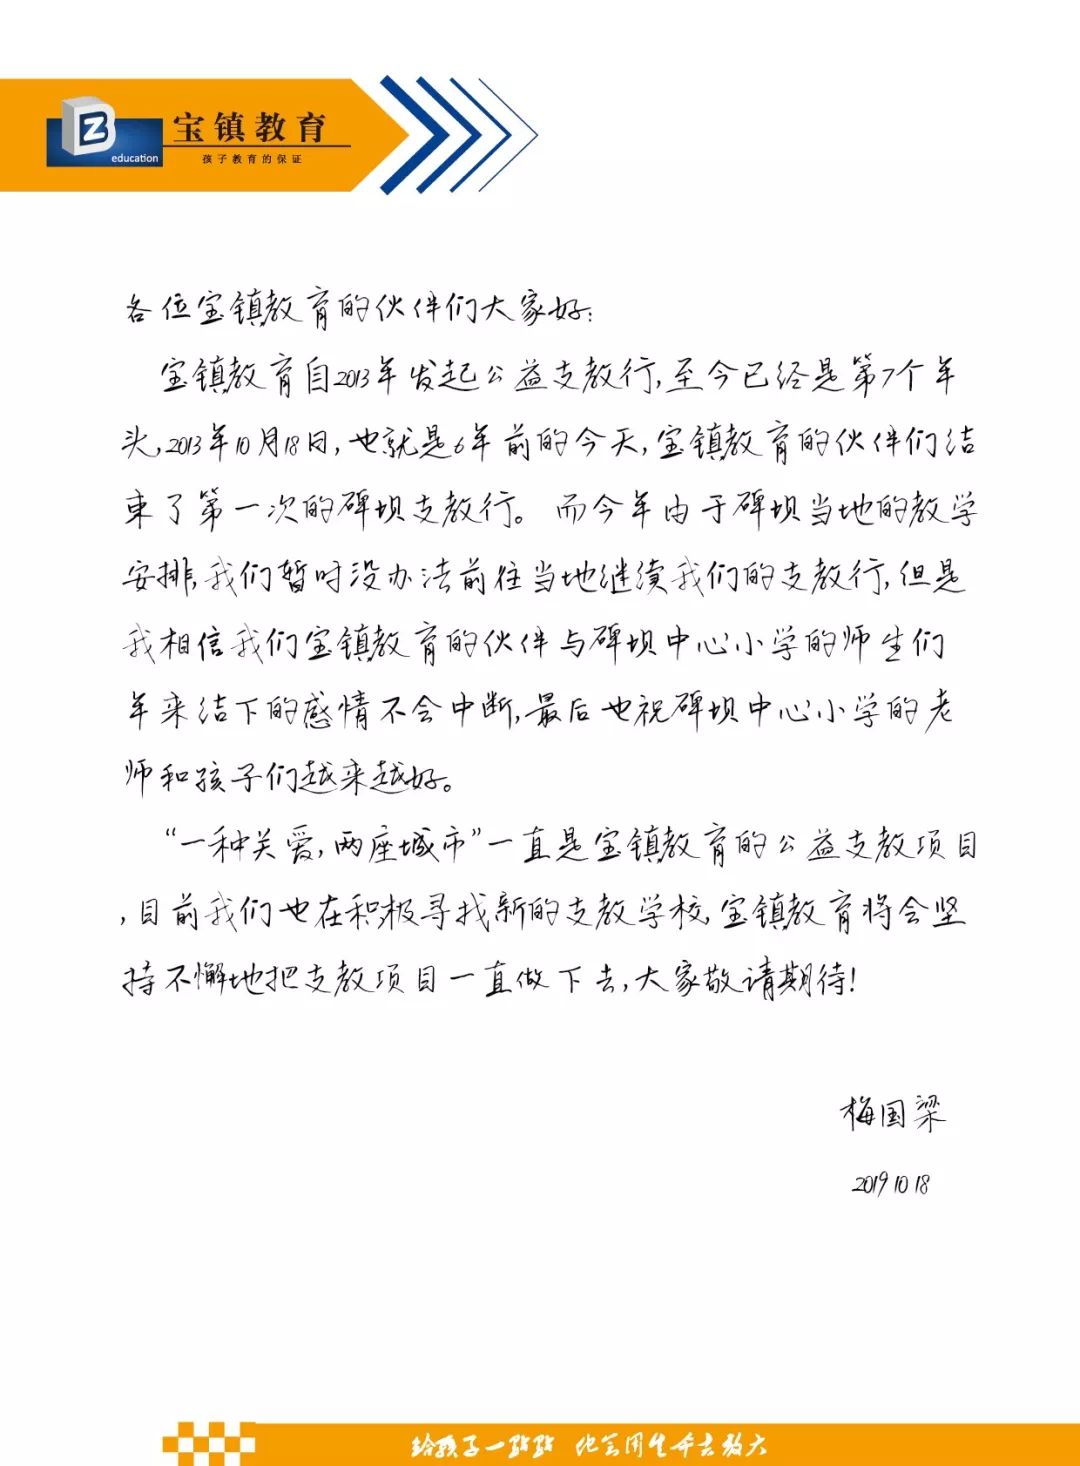 BZ
education
宝镇教育
孩子教育的保证
各位宝镇教育的伙伴们大家好:
宝镇教育自2013年发起公益支教行,至今已经是第7个年
头,2013年10月18日,也就是6年前的今天,宝镇教育的伙伴们结
束了第一次的碑坝支教行。而今年由于碑坝当地的教学
安排,我们暂时没办法前往当地继续我们的支教行,但是
我相信我们宝镇教育的伙伴与碑坝中心小学的师生们
年来结下的感情不会中断,最后也祝碑坝中心小学的老
师和孩子们越来越好。
“一种关爱,两座城市”一直是宝镇教育的公益支教项目
,目前我们也在积极寻找新的支教学校,宝镇教育将会坚
持不懈地把支教项目一直做下去,大家敬请期待!
梅国梁
2019 10 18
给孩子一点点 他会用生命去放大